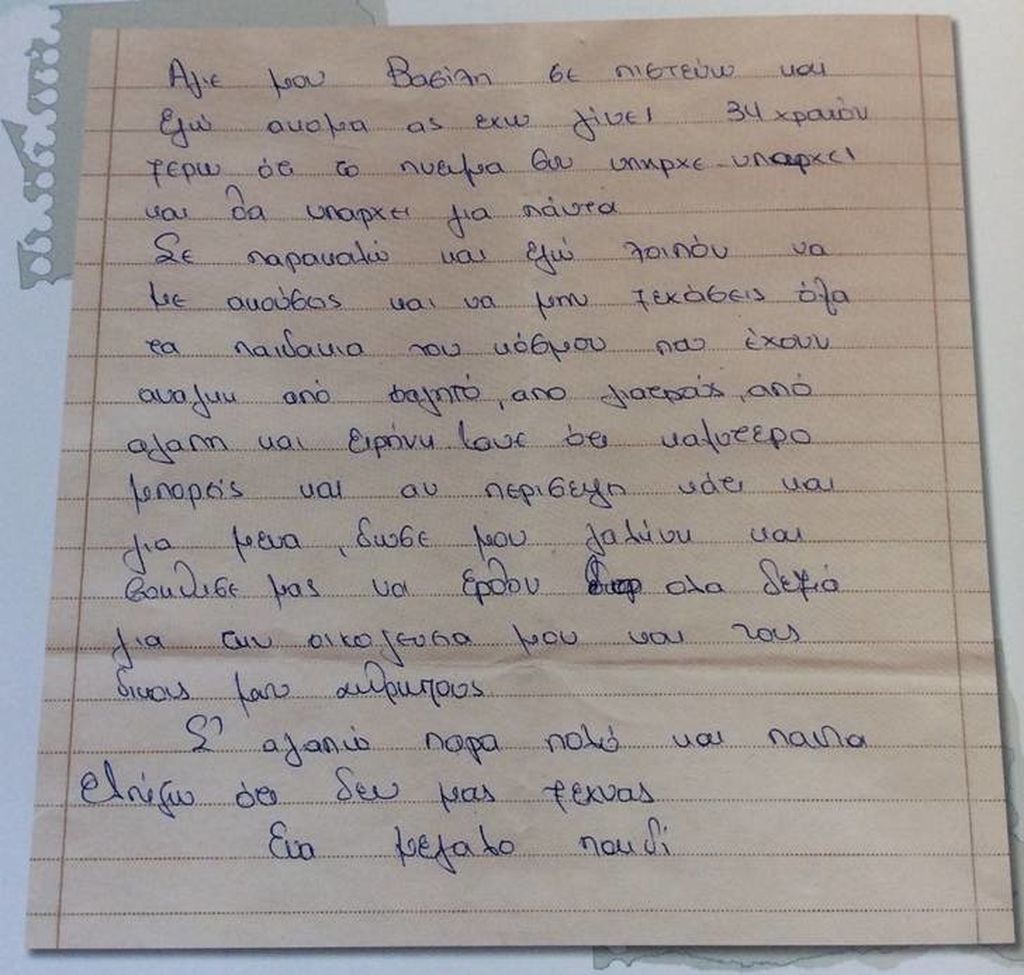 Αγιε μου Βασίλη σε πιστεύω και
εγώ ακομα ας εχω γίνει 34 χρονών
ξερω ότι το πνευμα σου υπηρχε υπαρχει
και θα υπαρχει για πάντα
Σε παρακαλώ και εγώ λοιπόν να
με ακούσεις και να μην ξεχάσεις όλα
τα παιδακια του κόσμου που έχουν
αναγκη από φαγητό, απο γιατρούς, από
αγαπη και ειρήνη κανε ότι καλυτερο
μπορείς και αν περισεψη κάτι και
για μενα, δωσε μου γαλήνη και
βοηθισε μας να ερθουν ολα δεξιά
για την οικογενεια μου και τους
δικους μου ανθρωπους
Σ' αγαπώ παρα πολύ και παντα
ελπίζω ότι δεν μας ξεχνας
Ενα μεγαλο παιδί